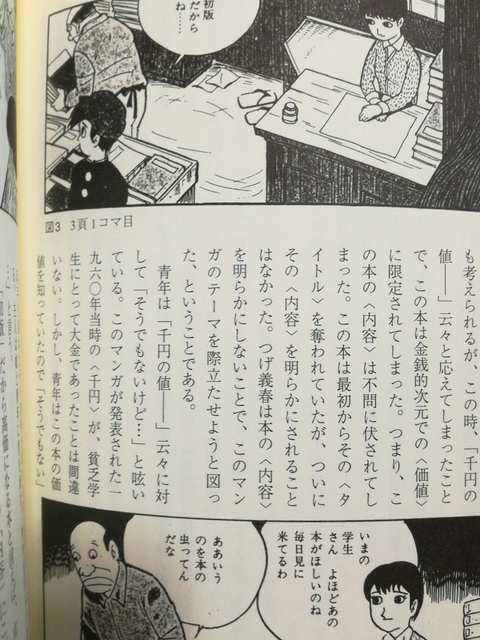 初版
だから
ね…
図3 3頁1コマ目
も考えられるが、この時、「千円の
値――」云々と応えてしまったこと
で、この本は金銭的次元での〈価値〉
に限定されてしまった。つまり、こ
の本の〈内容〉は不問に伏されてし
まった。この本は最初からその〈タ
イトル〉を奪われていたが、ついに
その〈内容〉を明らかにされること
はなかった。つげ義春は本の〈内容〉
を明らかにしないことで、このマン
ガのテーマを際立たせようと図っ
た、ということである。
青年は「千円の値――」云々に対
して「そうでもないけど…」と呟い
ている。このマンガが発表された一
九六〇年当時の〈千円〉が、貧乏学
生にとって大金であったことは間違
いない。しかし、青年はこの本の価
値を知っていたので「そうでもない」
いまの
学生
さん よほどあの
本がほしいのね
毎日見に
来てるわ
ああいう
のを本の
虫ってん
だな